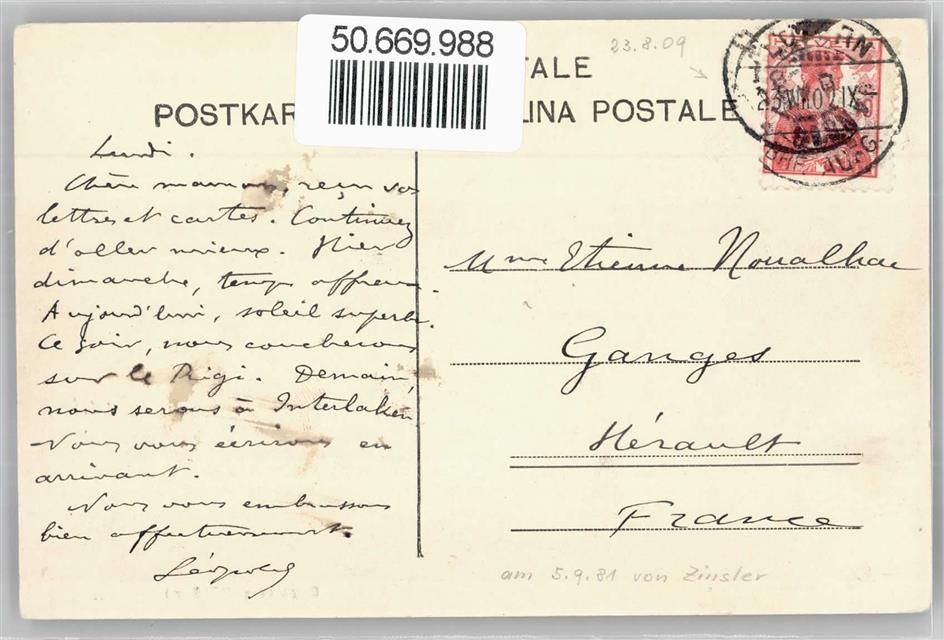 50.669.988
23.8.09
TALE
POSTKAR
LINA POSTALE
LUZERN
Lundi.
Chère maman, reçu vos
lettres et cartes. Continuez
d'aller mieux. Hier
dimanche, temps affreux.
Aujourd'hui, soleil superbe.
Ce soir, nous coucherons
sur le Rigi. Demain,
nous serons à Interlaken
Nous vous écrirons en
arrivant.
Nous vous embrassons
bien affectueusement.
Léopold
Mme Etienne Noualhac
Ganges
Hérault
France
am 5.9.81 von Zinsler